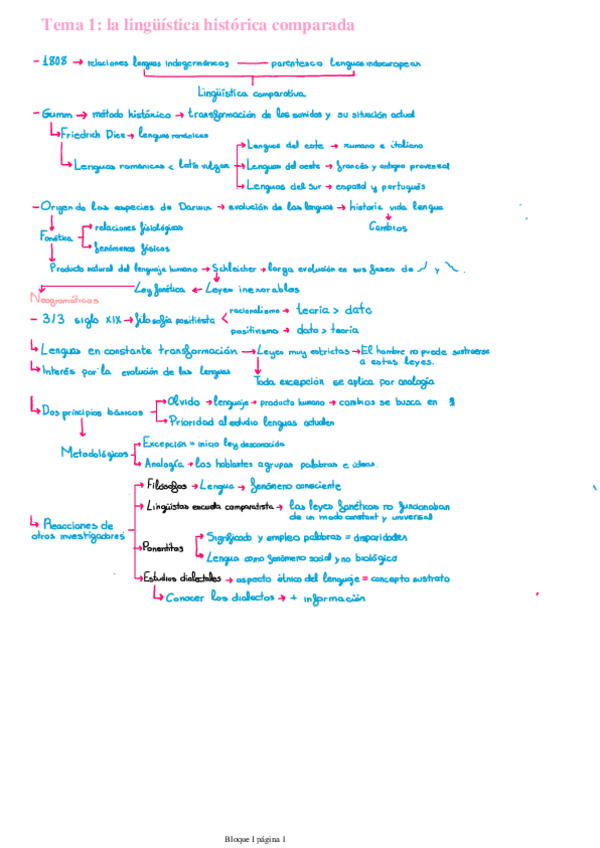 Tema 1: la lingüística histórica comparada
- 1808 → relaciones lenguas indogermánicas — parentesco lenguas indoeuropeas
Lingüística comparativa
- Gumm → método histórico → transformación de los sonidos y su situación actual
Friedrich Diez → lenguas románicas
Lenguas del este → rumano e italiano
Lenguas románicas < latín vulgar
Lenguas del oeste → francés y antiguo provenzal
Lenguas del sur → español y portugués
- Origen de las especies de Darwin → evolución de las lenguas → historia vida lengua
relaciones fisiológicas
Cambios
Fonética
fenómenos físicos
Producto natural del lenguaje humano → Schleicher → larga evolución en sus fases de y
Ley fonética ← Leyes inexorables
Neogramáticos
- 3/3 siglo XIX → filosofía positivista
racionalismo → teoría > dato
positivismo → dato > teoría
Lenguas en constante transformación → Leyes muy estrictas → El hombre no puede sustraerse
a estas leyes.
Interés por la evolución de las lenguas
Toda excepción se aplica por analogía
Dos principios básicos
Olvido → lenguaje → producto humano → cambios se busca en
Prioridad al estudio lenguas actuales
Metodológicos
Excepción = inicio ley desconocida
Analogía → los hablantes agrupan palabras e ideas.
Filósofos → Lengua → fenómeno consciente
Lingüistas escuela comparatista → las leyes fonéticas no funcionaban
de un modo constant y universal
Reacciones de
otros investigadores
Ponentitas
Significado y empleo palabras = disparidades
Lengua como fenómeno social y no biológico
Estudios dialectales → aspecto étnico del lenguaje = concepto sustrato
Conocer los dialectos → + información
Bloque I página 1